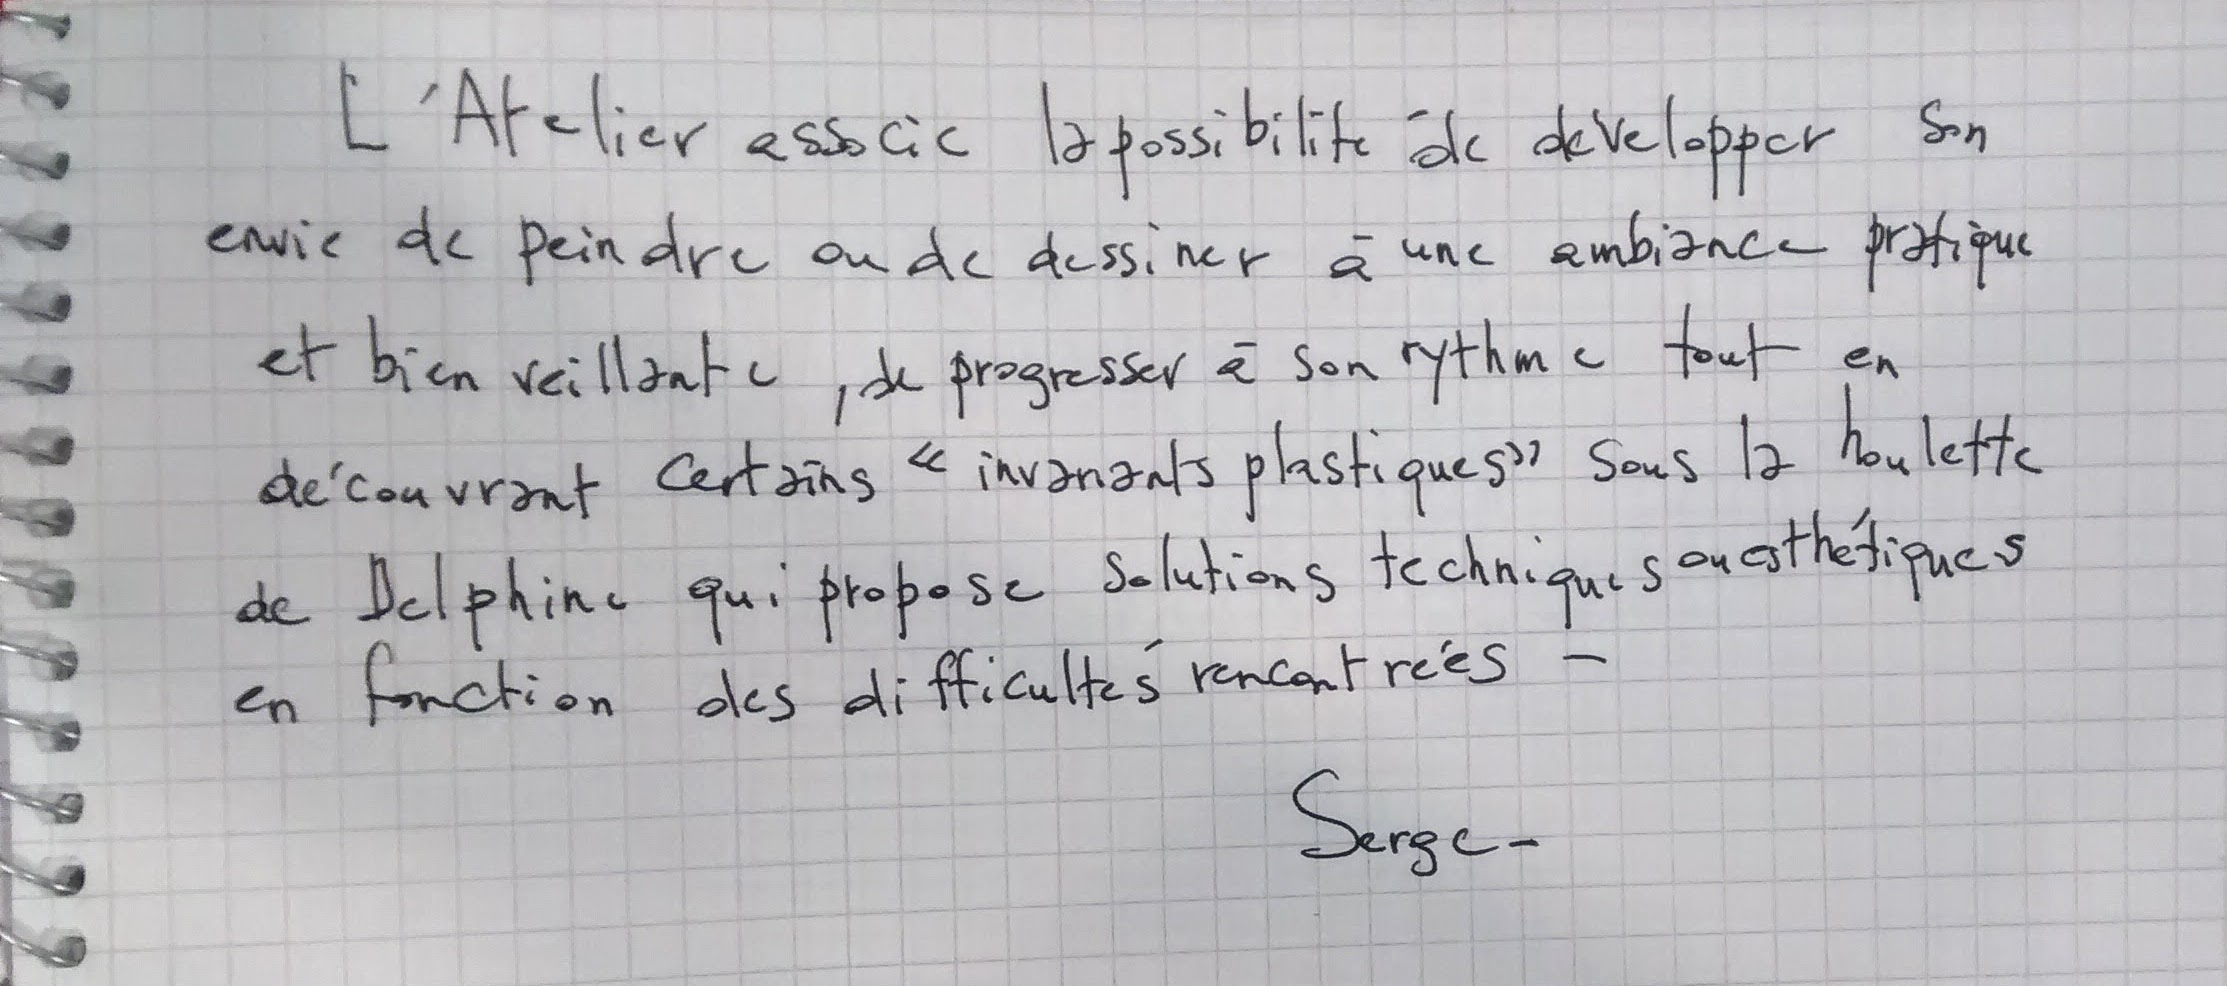 L'Atelier associe la possibilité de développer son
envie de peindre ou de dessiner à une ambiance pratique
et bien veillante, de progresser à son rythme tout en
découvrant certains « invariants plastiques » sous la houlette
de Delphine qui propose solutions techniques ou esthétiques
en fonction des difficultés rencontrées -
Serge -